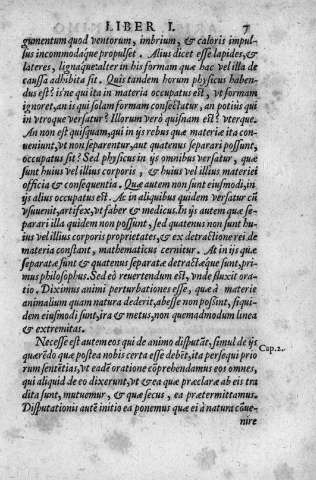 LIBER I. 7
gumentum quod ventorum, imbrium, & caloris impul-
sus incommodaque propulset. Alius dicet esse lapides, &
lateres, lignaque: alter in his formam quæ hac vel illa de
caussa adhibita sit. Quis tandem horum physicus haben-
dus est? is ne qui ita in materia occupatus est, vt formam
ignoret, an is qui solam formam consectatur, an potiùs qui
in vtroque versatur? Illorum verò quisnam est? vterque.
An non est quisquam, qui in ijs rebus quæ materiæ ita con-
ueniunt, vt non separentur, aut quatenus separari possunt,
occupatus sit? Sed physicus in ijs omnibus versatur, quæ
sunt huius vel illius corporis, & huius vel illius materiei
officia & consequentia. Quæ autem non sunt eiusmodi, in
ijs alius occupatus est. Ac in aliquibus quidem versatur cũ
vsuuenit, artifex, vt faber & medicus. In ijs autem quæ se-
parari illa quidem non possunt, sed quatenus non sunt hu-
ius vel illius corporis proprietates, & ex detractione rei de
materia constant, mathematicus cernitur. At in ijs quæ
separatæ sunt & quatenus separatæ detractæque sunt, pri-
mus philosophus. Sed eò reuertendum est, vnde fluxit orat-
tio. Diximus animi perturbationes esse, quæ à materie
animalium quam natura dederit, abesse non possint, siqui-
dem eiusmodi sunt, ira & metus, non quemadmodum linea
& extremitas.
Necesse est autem eos qui de animo disputãt, simul de ijs
quærẽdo quæ postea nobis certa esse debẽt, ita persequi prio
rum sentẽtias, vt eadẽ oratione cõprehendamus eos omnes,
qui aliquid de eo dixerunt, vt & ea quæ præclarè ab eis tra
dita sunt, mutuemur, & quæ secus, ea prætermittamus.
Disputationis autẽ initio ea ponemus quæ ei à natura cõue-
nire
Cap. 2.